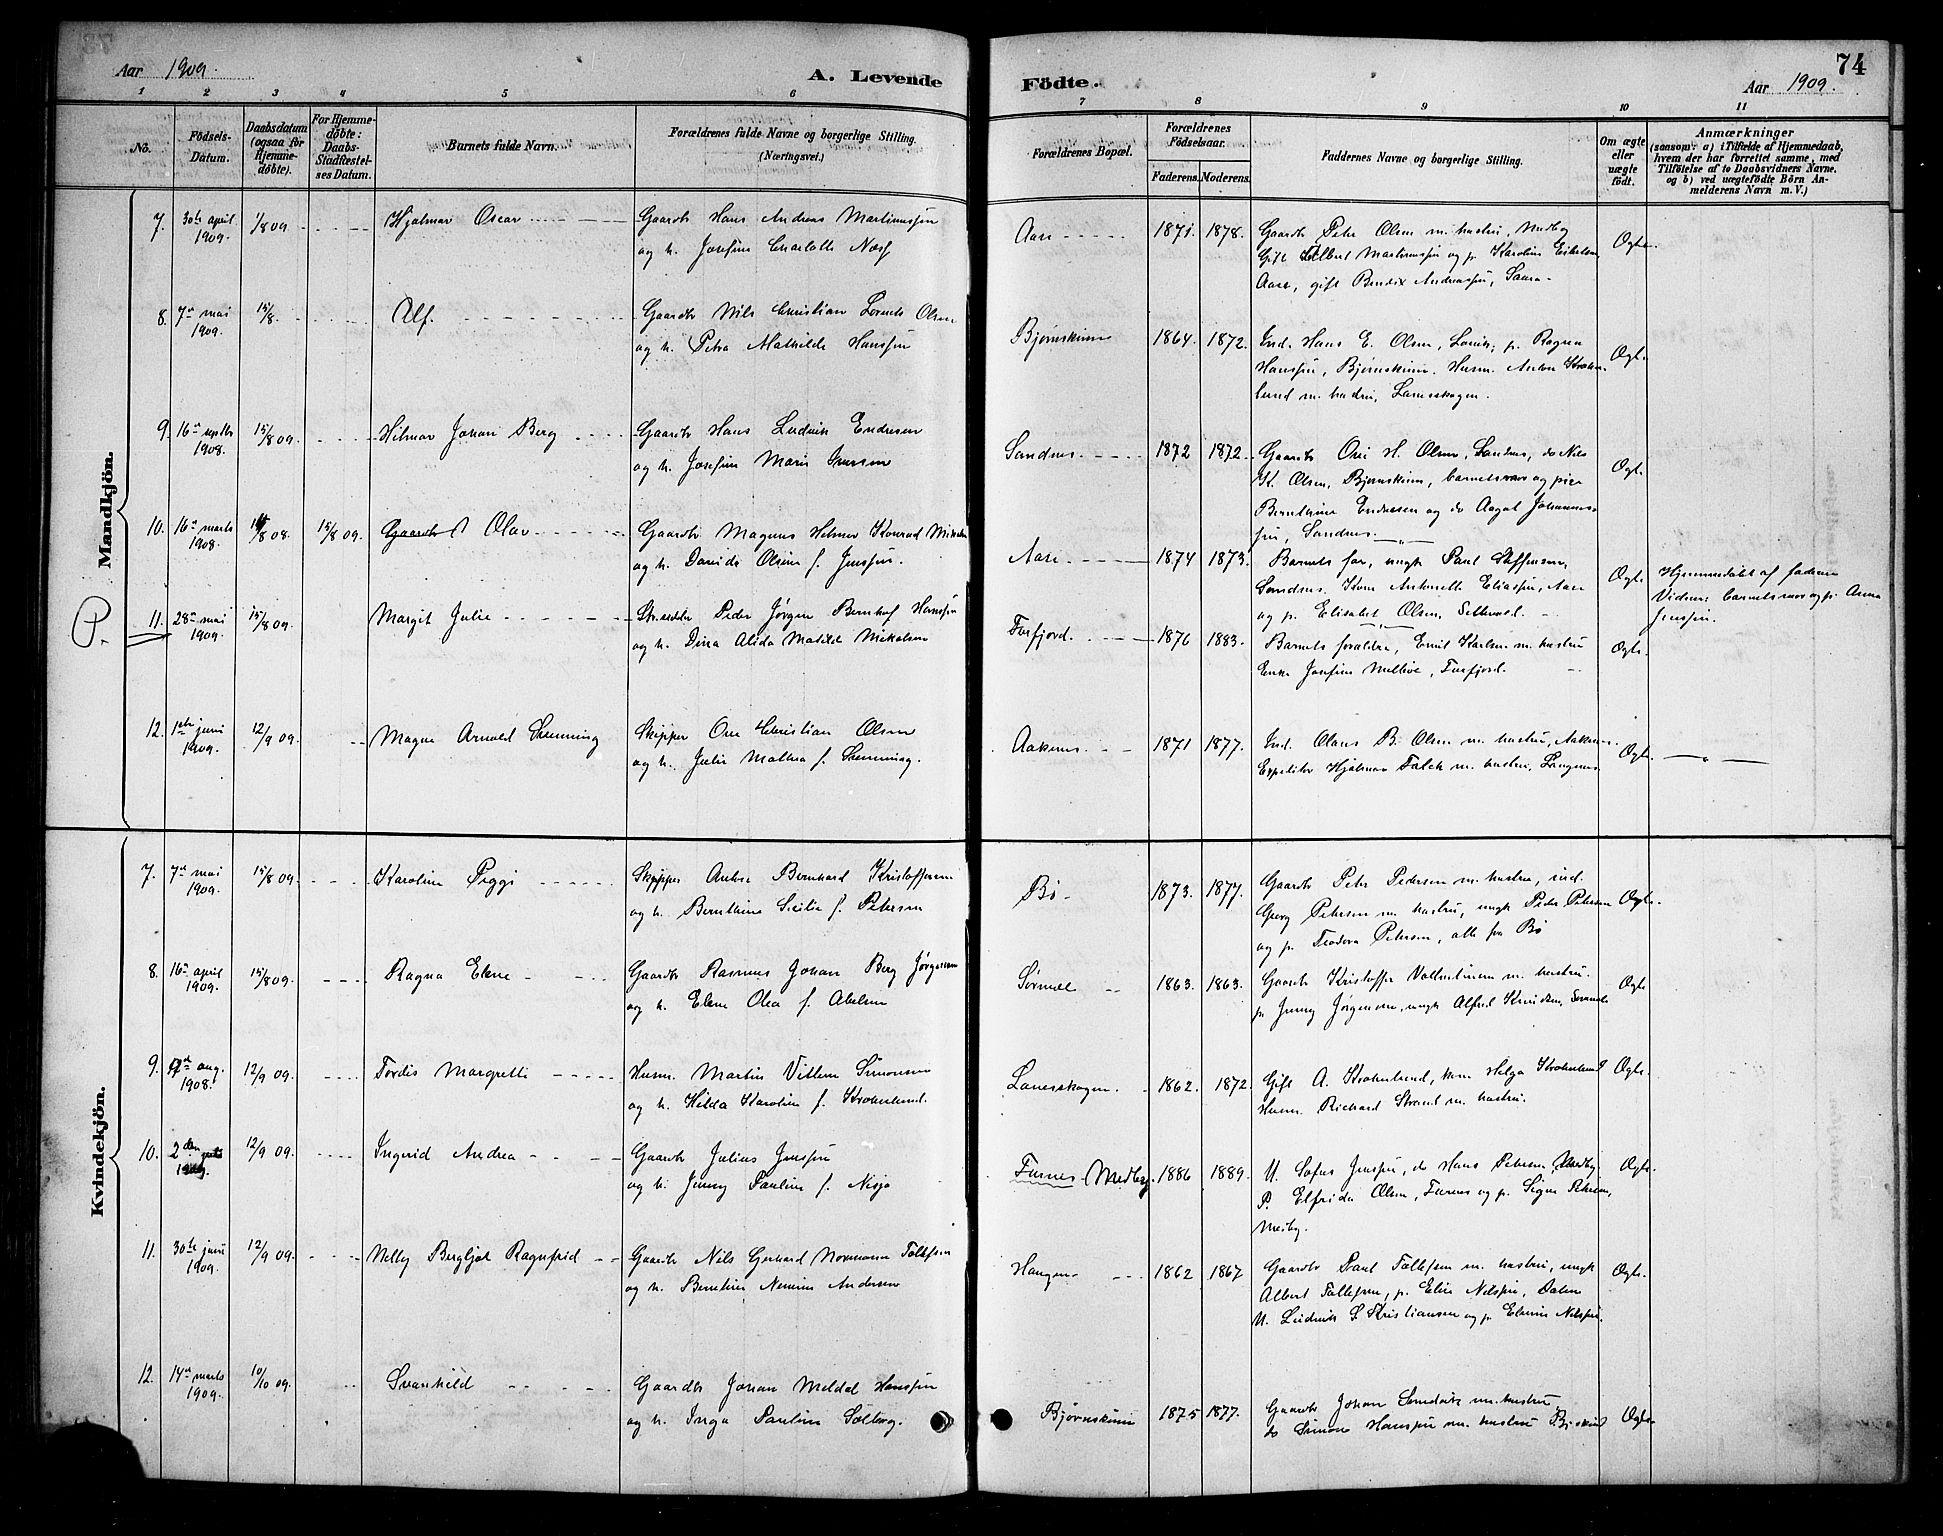 Aar 1909.
A. Levende
Födte.
74
Aar 1909.
1 2 3 4 5 6 7 8 9 10 11
No.
Födsels-
Datum.
Daabsdatum
(ogsaa for
Hjemme-
döbte).
For Hjemme-
döbte:
Daabs-
Stadfæstel-
ses Datum.
Barnets fulde Navn.
Forældrenes fulde Navne og borgerlige Stilling.
(Næringsvei.)
Forældrenes Bopæl.
Forældrenes
Födselsaar.
Faderens. Moderens.
Faddernes Navne og borgerlige Stilling.
Om ægte
eller
uægte
födt.
Anmærkninger
(saasom: a) i Tilfælde af Hjemmedaab,
hvem der har forrettet samme, med
Tilföielse af to Daabsvidners Navne,
og b) ved uægtefödte Börn An-
melderens Navn m. V.)
Mandkjön.
7. 30te april 1909. 1/8 09. Hjalmar Oscar
Gaardb. Hans Andreas Martinussen
og h. Josefine Charlotte Næss
Aase 1871. 1878.
Gaardb. Peter Olsen m. hustru, Medby
Gift Albert Martinussen og p. Karoline Eskelsen
Aase, gift Bendix Andreassen, Saura
Ægte.
8. 7de mai 1909. 15/8. Alf.
Gaardb. Nils Christian Lorents Olsen
og h. Petra Mathilde Hanssen
Bjørnskinn 1864. 1872.
Ind. Hans E. Olsen, p. Ragna
Hanssen, Bjørnskinn. Husm. Anton Krohn-
lund m. hustru, Lanesskogen.
Ægte
9. 16de septbr 1908. 15/8 09. Hilmar Johan Berg
Gaardb. Hans Ludvik Endresen
og h. Josefine Marie Iversen
Sandnes. 1872 1872.
Gaardb. Ove H. Olsen, Sandnes, do Nils
K. Olsen, Bjørnskinn, barnets mor og pier
Bernthine Endresen og do Aagot Johannes-
sen, Sandnes.
Ægte
10. 16de marts 1908. 8 08. 15/8 09. Gaardb Olav
Gaardb. Magnus Helmer Konrad Mikalsen
og h. Davida Olsine f. Jenssen.
Aase 1874 1873.
Barnets far, ungk. Paul Steffensen,
Sandnes. Kone Antonette Eliassen, Aase
og p. Elisabet Olsen,
Ægte
Hjemmedøbt af faderen
Vidner: barnets mor og p. Anna
Jenssen.
P.
11. 28de mai 1909. 15/8 09. Margit Julie
Peder Jørgen Bernhof Hanssen
og h. Dina Alida Matilde Mikalsen
Forfjord. 1876 1883.
Barnets foræld​re, Emil Karlsen m. hustru
Enke Josefine Forfjord.
Ægte.
12. 1ste juni 1909. 12/9 09. Magne Arnold Henning
Skipper Ove Christian Olsen
og h. Julie Mathea f. Henning.
Aaknes. 1871 1877.
Ind. Olaus B. Olsen m. hustru, Aaknes
Expeditør Hjalmar Falck m. hustru, Langenes
Ægte. — „ —
Kvindekjön.
7. 7de mai 1909. 15/8 09. Karoline Piggi
Skipper Anton Bernhard Kristoffersen
og h. Bernthine Sicilie f. Petersen
Bø 1873. 1877.
Gaardb. Peter Pedersen m. hustru, ind.
Georg Petersen m. hustru, ungk. Peder Petersen
og p. Teodora Petersen, alle fra Bø
Ægte.
8. 16de april 1909. 15/8 09. Ragna Elene
Gaardb. Rasmus Johan Berg Jørgensen
og h. Elene Olea f. Abelsen
Sørmele 1863. 1863.
Gaardb. Kristoffer Vallentinsen m. hustru.
p. Jenny Jørgensen, ungk. Alfred Knudsen, Sørmele
Ægte
9. aug. 1908. 12/9 09. Tordis Margrethe
Husm. Martin Villem Simonsen
og h. Hilda Karoline f. Krohnlund.
Lanesskogen. 1862. 1872.
Gift A. Krohnlund, kone Helga Krohnlund
Husm. Richard Strand m. hustru.
Ægte.
10. 2den 1909. 12/9 09. Ingerid Andrea
Gaardb. Julius Jenssen
og h. Jenny Pauline f. Nesje
Furnes Medby. 1886 1889.
U. Sofus Jenssen, do Hans Petersen, Medby.
P. Elfrida Olsen, Furnes og p. Signe Petersen,
Medby.
Ægte.
11. 30te juni 1909. 12/9 09. Nelly Bergljot Ragnfrid
Gaardb. Nils Gerhard Normann Tollefsen
og h. Berntine Nimine Andersen
Haugen 1862 1867
Gaardb. Paul Tollefsen m. hustru, ungk.
Albert Tollefsen, p. Elise Nilssen, Dalen
U. Ludvik S. Kristiansen og p. Elmine Nilssen.
Ægte.
12. 14de marts 1909. 10/10 09. Svanhild
Gaardb. Johan Meldal Hanssen
og h. Inga Pauline Solberg.
Bjørnskinn 1875 1877.
Gaardb. Johan m. hustru
do Simon Hanssen m. hustru
Ægte.